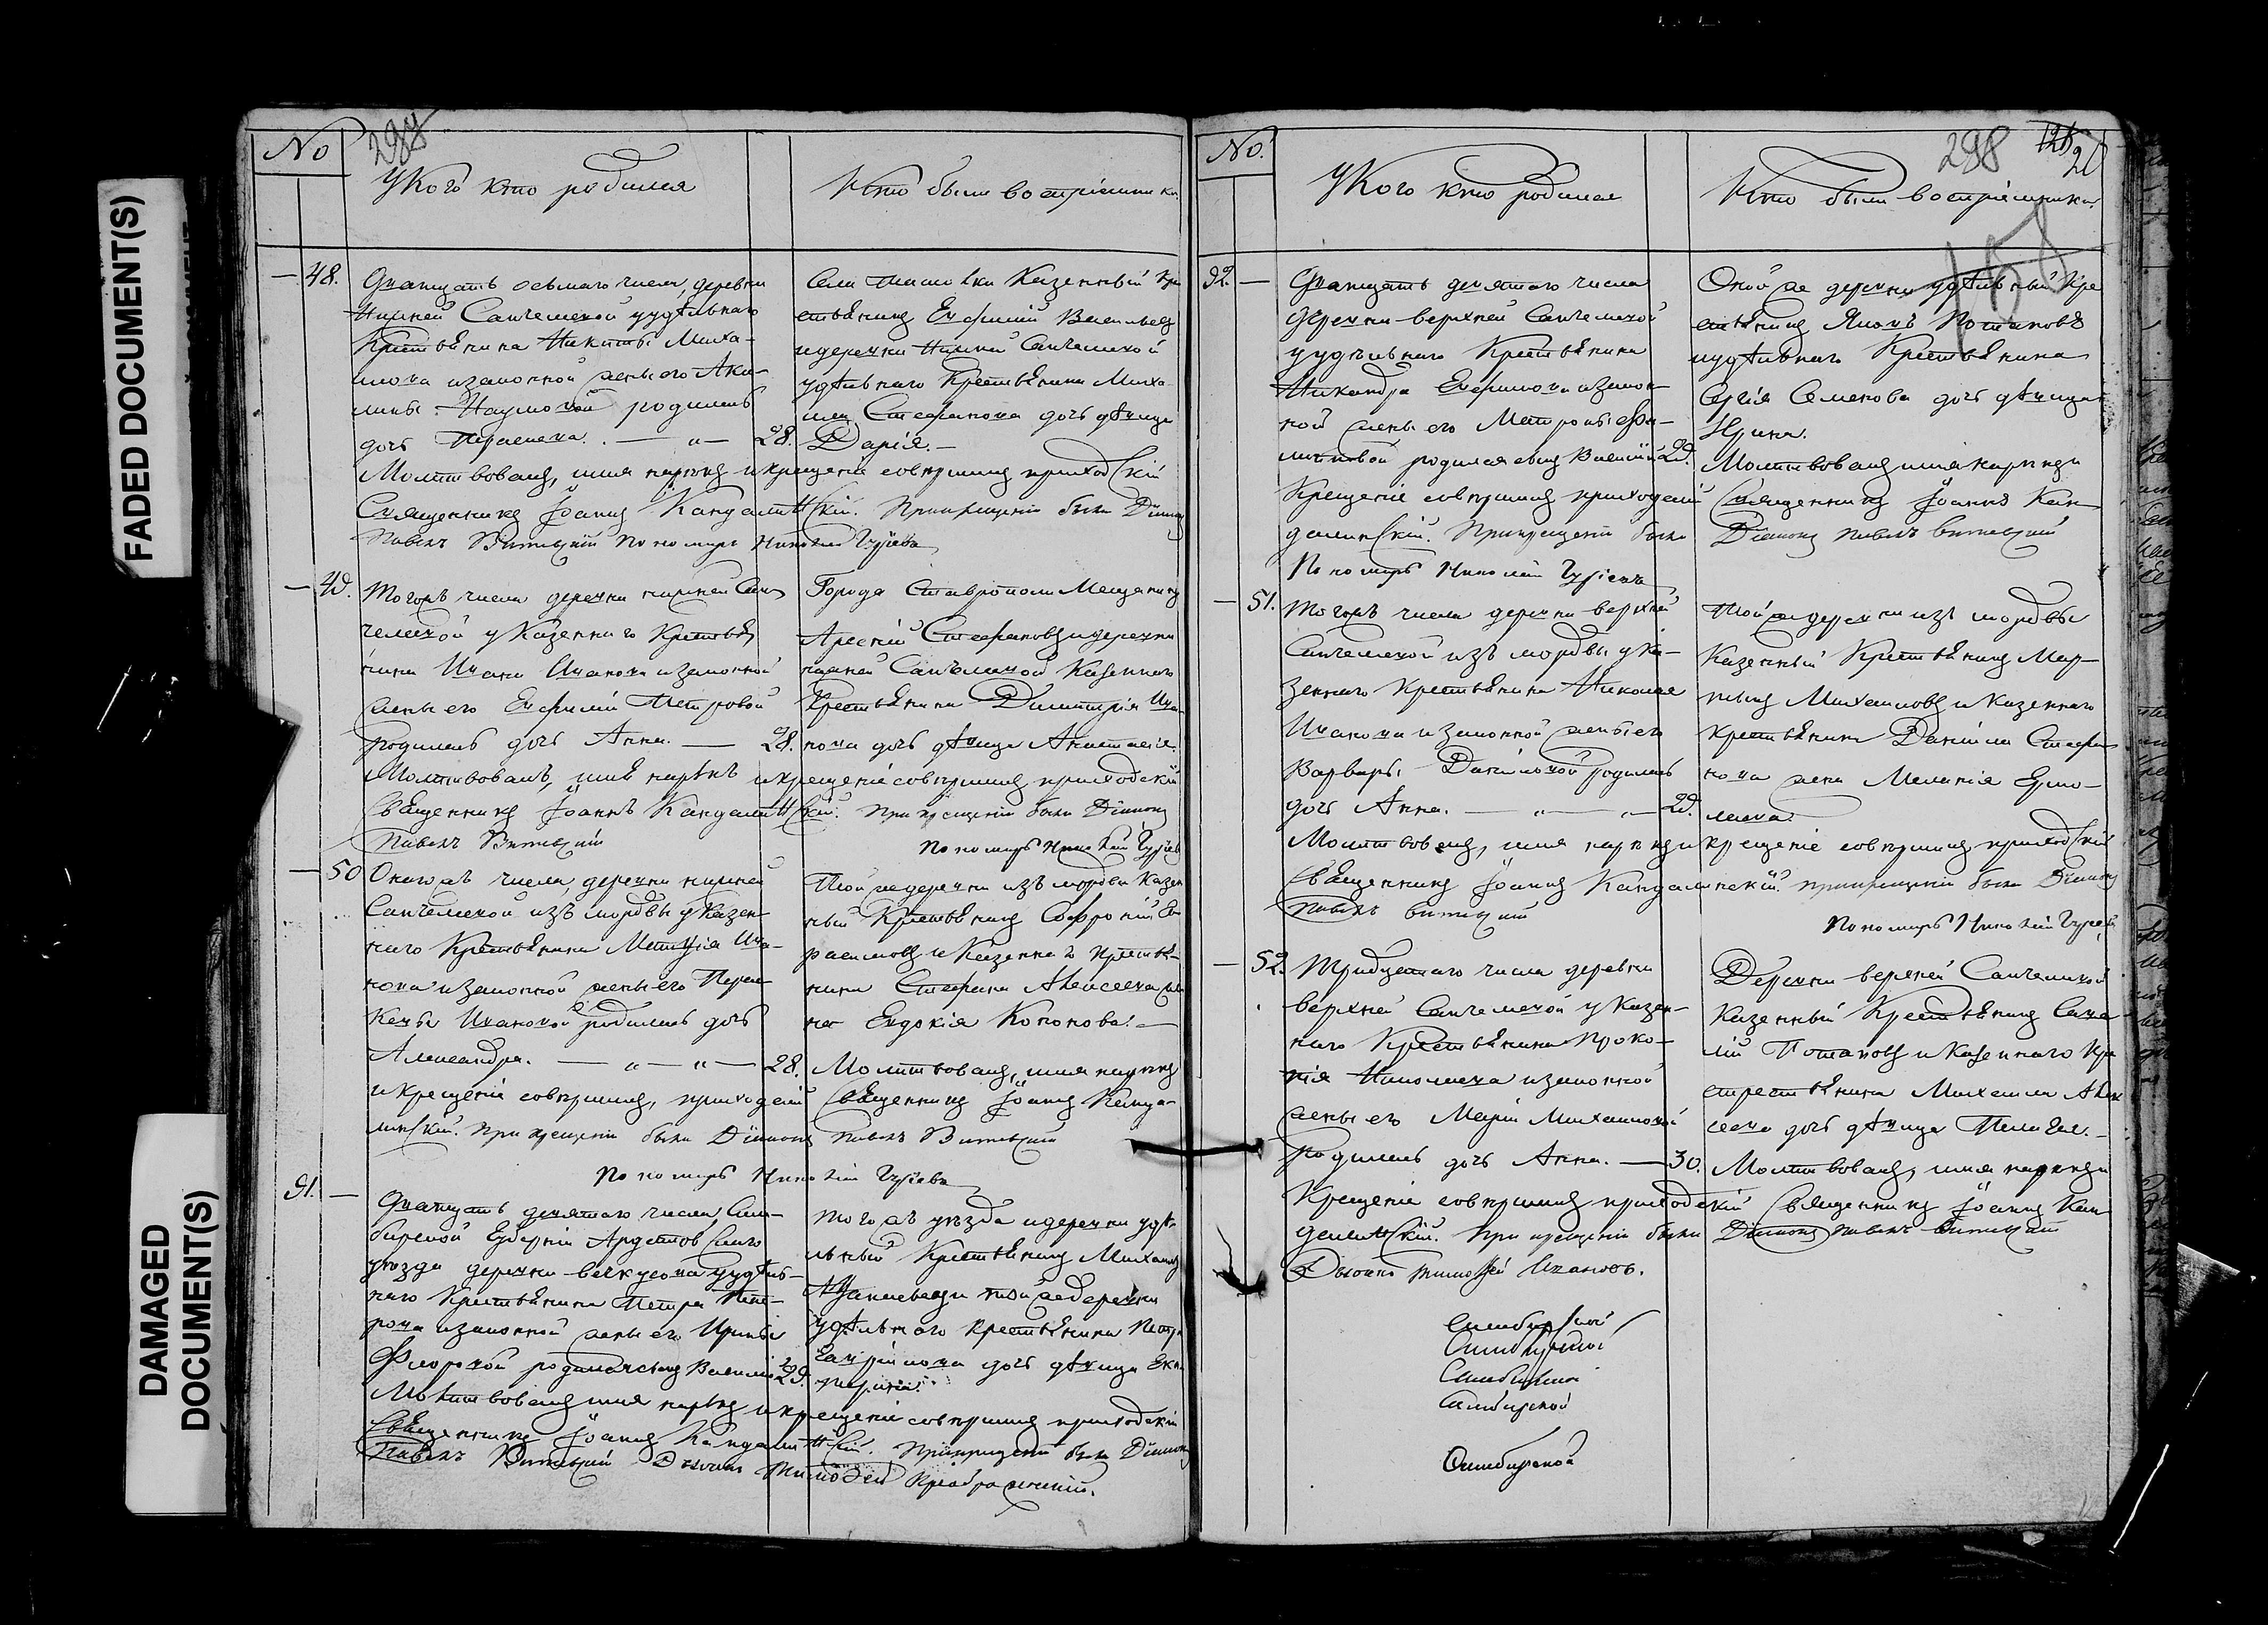 FADED DOCUMENT(S)
DAMAGED
DOCUMENT(S)
No
У кого кто родился
Кто были восприемники
48.
Дватцать осьмаго числа, деревни
Нижней Санчелеевой у удѣльнаго
Крестьянина Никиты Миха-
илова и законной жены его Аку-
лины Наумовой родилась
дочь Параскева. — „ — 28.
Села Ташолки Казенный Кре
стьянинъ Ефимий Васильевъ
и деревни Нижней Санчелеевой
удѣльнаго Крестьянина Миха
ила Стефанова дочь дѣвица
Дарія. —
Молитвовалъ, имя нарекъ и крещеніе совершилъ приходскій
Священникъ Іоаннъ Кандалинскій. При крещеніи были Діаконъ
Павелъ Пономарь Николай Гурьевъ
49.
Тогожъ числа деревни нижней Сан
челеевой у Казеннаго Крестья
нина Ивана Иванова и законной
жены его Петровой
родилась дочь Анна. — 28.
Города Ставрополя Мещанинъ
Арсеній Стефановъ и деревни
нижней Санчелеевой Казеннаго
Крестьянина Димитрія Ива-
нова дочь дѣвица Анастасія.
Молитвовалъ, имя нарѣкъ и крещеніе совершилъ приходскій
Священникъ Іоаннъ Кандалинскій. При крещеніи были Діаконъ
Павелъ
Пономарь Николай Гурьевъ
50
Онагожъ числа, деревни нижней
Санчелеевой изъ мордвы у Казен-
наго Крестьянина Матвѣя Ива-
нова и законной жены его Парас-
кевы Ивановой родилась дочь
Александра. — „ — „ — 28.
Той же деревни изъ мордвы Казен
ный Крестьянинъ Софроній
и Казеннаго Крестья-
нина Стефана Алексеева же
на Евдокія Кононова. —
Молитвовалъ, имя нарекъ
и крещеніе совершилъ, приходскій Священникъ Іоаннъ Канда-
линскій. При крещеніи были Діаконъ Павелъ
Пономарь Николай Гурьевъ
91. —
Дватцать девятаго числа Сим-
бирской Губерніи Ардатовскаго
уѣзда деревни у удѣль-
наго Крестьянина Петра Пет-
рова и законной жены его Ирины
Фроловой родился сынъ Василій 29.
Тогожъ уѣзда и деревни удѣ-
льный Крестьянинъ Михаилъ
Афанасьевъ и той же деревни
удѣльнаго Крестьянина Петра
дочь дѣвица Ека
терина.
Молитвовалъ имя нарѣкъ и крещеніе совершилъ приходскій
Священникъ Іоаннъ Кандалинскій. При крещеніи были Діаконъ
Павелъ Дьячекъ Тимофей Преображенскій.
No.
298
У кого кто родился
Кто были восприемники
92. —
Дватцать девятаго числа
деревни верхней Санчелеевой
у удѣльнаго Крестьянина
Никандра Ефимова и закон-
ной жены его Матроны Фи-
липповой родился сынъ Василій 29.
Оной же деревни удѣльный Кре
стьянинъ Яковъ Потаповъ
и удѣльнаго Крестьянина
Сергія Семенова дочь дѣвица
Ирина.
Молитвовалъ имя нарекъ и
Крещеніе совершилъ приходскій Священникъ Іоаннъ Кан
далинскій. При крещеніи были Діаконъ Павелъ
Пономарь Николай Гурьевъ
51.
Тогожъ числа деревни верхней
Санчелеевой изъ мордвы у Ка-
зеннаго Крестьянина Николая
Иванова и законной жены его
Варвары Даниловой родилась
дочь Анна. — „ — „ — 29.
Той же деревни изъ мордвы
Казенный Крестьянинъ Мар-
тынъ Михаиловъ и Казеннаго
Крестьянина Даніила Стефа
нова жена Меланія Ермо-
лаева.
Молитвовалъ, имя нарекъ и крещеніе совершилъ приходскій
Священникъ Іоаннъ Кандалинскій. При крещеніи были Діаконъ
Павелъ
Пономарь Николай Гурьевъ
52.
Тридцатаго числа деревни
верхней Санчелеевой у Казен-
наго Крестьянина Проко-
пія Николаева и законной
жены его Маріи Михаиловой
родилась дочь Анна. — 30.
Деревни верхней Санчелеевой
Казенный Крестьянинъ Саве
лій Потаповъ и Казеннаго Кре
стьянина Михаила Алек
сеева дочь дѣвица Пелагея. —
Молитвовалъ, имя нарекъ и
Крещеніе совершилъ приходскій Священникъ Іоаннъ Кан
далинскій. При крещеніи были Діаконъ Павелъ
Дьячекъ Тимофей Ивановъ.
Симбирской
Симбирской
Симбирской
Симбирской
Симбирской